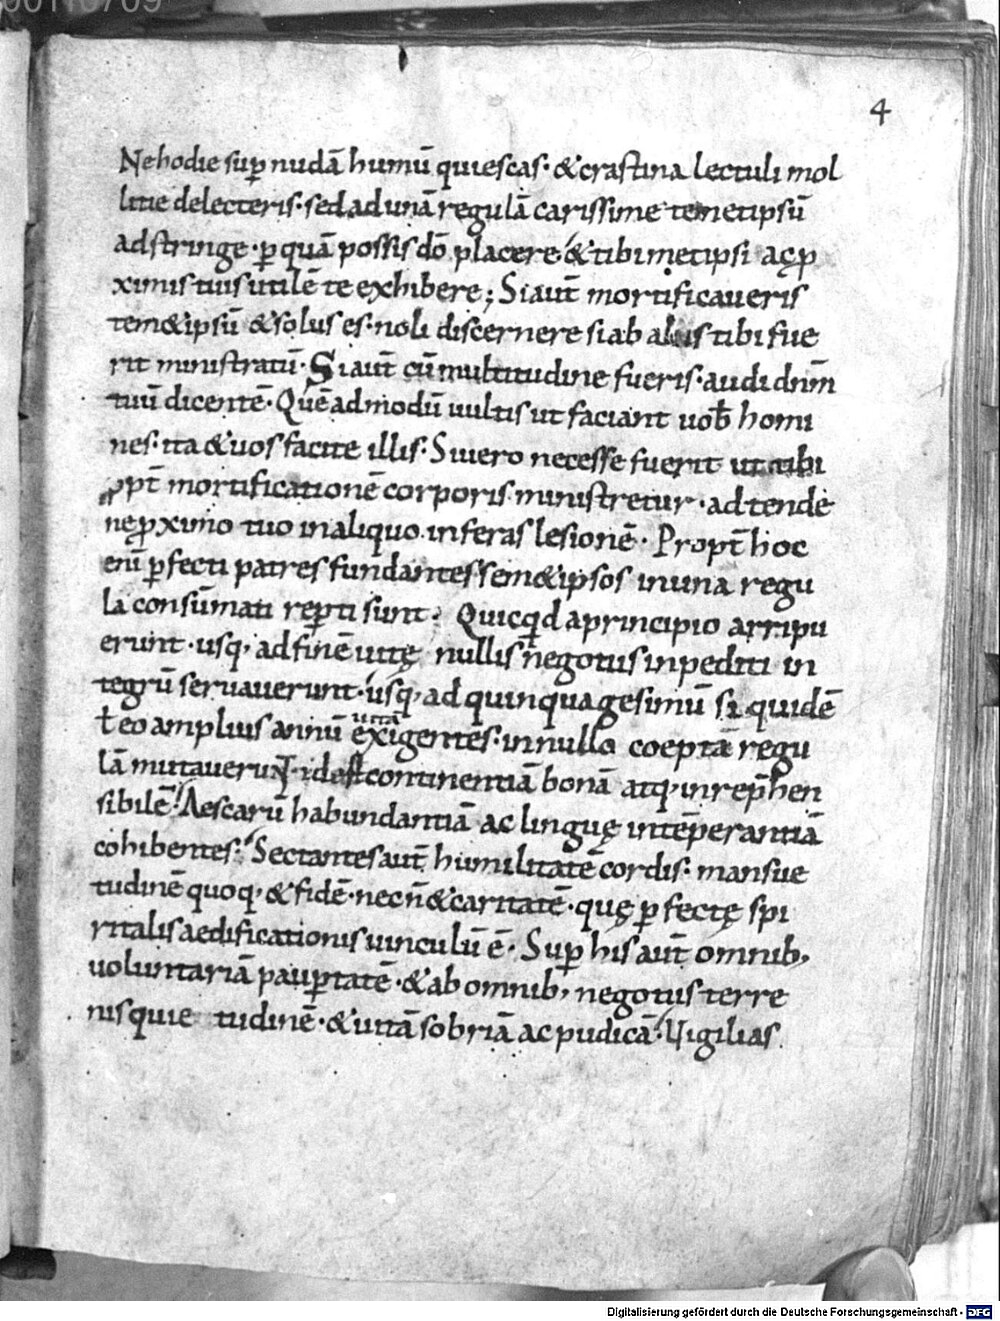 4
Nehodie sup̄ nudā humū quiescas· &crastina lectuli mol
litie delecteris· sed ad unā regulā carissime temetipsū
adstringe· ꝑ quā possis dō placere· & tibimetipsi ac ꝓ
ximis tuis utilē te exhibere; Si aut̄ mortificaueris
tem&ipsū & solus es· noli discernere si ab aliis tibi fue
rit ministratū· Si aut̄ cū multitudine fueris· audi dn̄m
tuū dicentē· Quēadmodū uultis ut faciant uob̄ homi
nes· ita & uos facite illis· Si uero necesse fuerit ut tibi
ꝓpt̄ mortificationē corporis ministretur· adtende
ne ꝓximo tuo in aliquo inferas lesionē· Propt̄ hoc
enī ꝑfecti patres fundantes sem&ipsos in una regu
la consūmati reꝑti sunt· Quicqd a principio arripu
erunt· usq; ad finē uitę nullis negotiis inpediti in
tegrū seruauerunt· usq; ad quinquagesimū siquidē
t̄ eo amplius annū uitā exigentes· in nullo coeptā regu
lā mutauerunt· id est continentiā bonā atq; inrep̄hen
sibilē· Aescarū habundantiā ac linguę intēperantiā
cohibentes· Sectantes aut̄ humilitatē cordis· mansue
tudinē quoq; & fidē· necn̄ & caritatē· quę ꝑfectę spi
ritalis aedificationis uinculū ē· Suꝑ his aut̄ omnib;
uoluntariā pauꝑtatē· & ab omnib; negotiis terre
nis quietudinē· & uitā sobriā ac pudicā· Uigilias
Digitalisierung gefördert durch die Deutsche Forschungsgemeinschaft - DFG